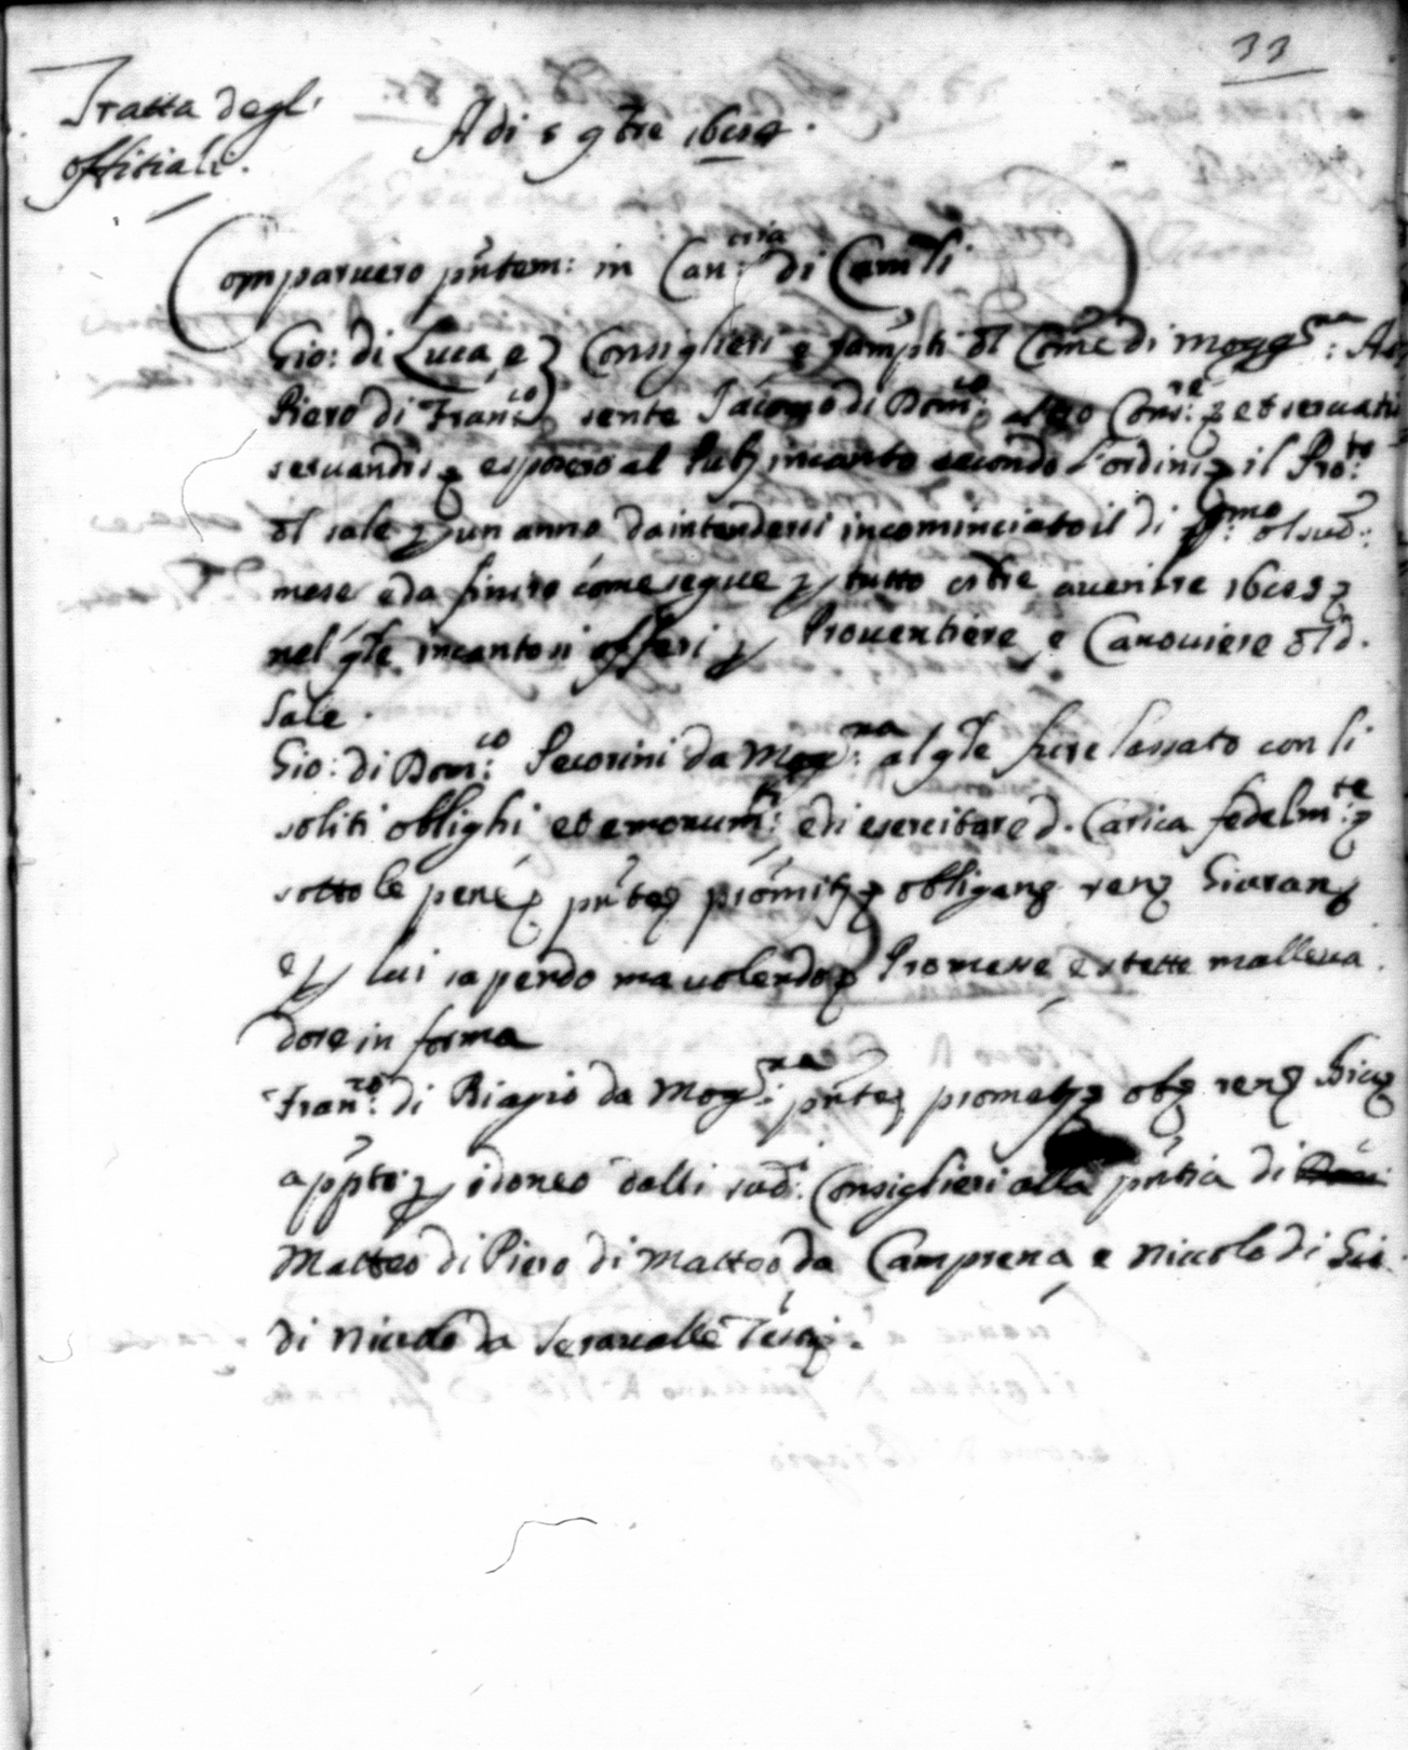 33
Tratta degl'
offitiali.
Adi 5 9bre
Comparuero pñtem: in Can:ria di Cam
Gio: di Luca, e Consiglieri e del Com̃e di mogg:na
Piero di Fran:co sente Jacomo di Dom:co altro Cons:re et seruatis
seruandis esposero al Pub incanto secondo l'ordini il Pro:to
dl sale p un anno da intendersi incominciato il di p:mo dl sud:
mese e da finire come segue p tutto 8bre auenire
nel qle incanto si offerì p Prouentiere e Canouiere dl d.
Sale.
Gio: di Dom:co Pecorini da Mog:na al qle fu relassato con li
soliti oblighi et emorum:ti e di esercitare d. Carica fedelm:te
sotto le pene pñte promit obligang reng Giurang
e p lui sapendo ma uolendo Promesse e stette malleua
dore in forma
Fran:co di Biagio da Mog:na pñte promet obg reng
app̃to p idoneo dalli sud:i Consiglieri alla pñtia di
Matteo di Piero di Matteo da Camprena e Nicolo di Gio
di Nicolo da Seraualle Tesij.